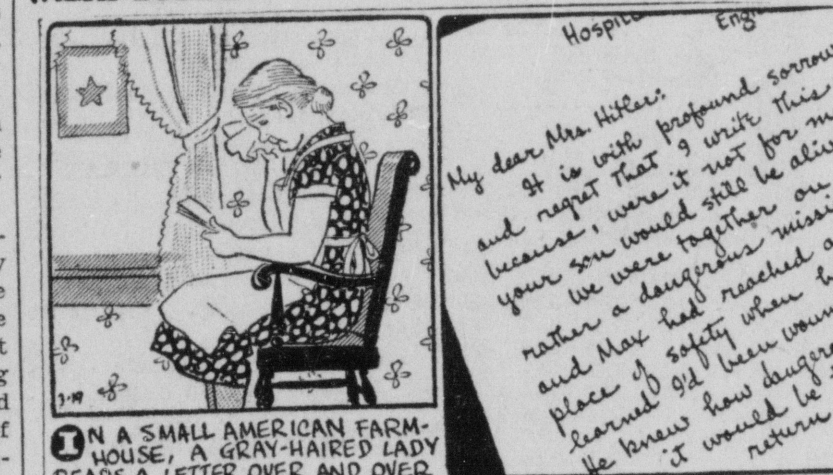 3-19
IN A SMALL AMERICAN FARM-
HOUSE, A GRAY-HAIRED LADY
READS A LETTER OVER AND OVER
My dear Mrs. Hitler:
It is with profound sorrow
and regret that I write this
because, were it not for m
your son would still be aliv
We were together on
rather a dangerous missi
and Max had reached a
place of safety when h
learned I'd been woun
He knew how dangero
it would be
return